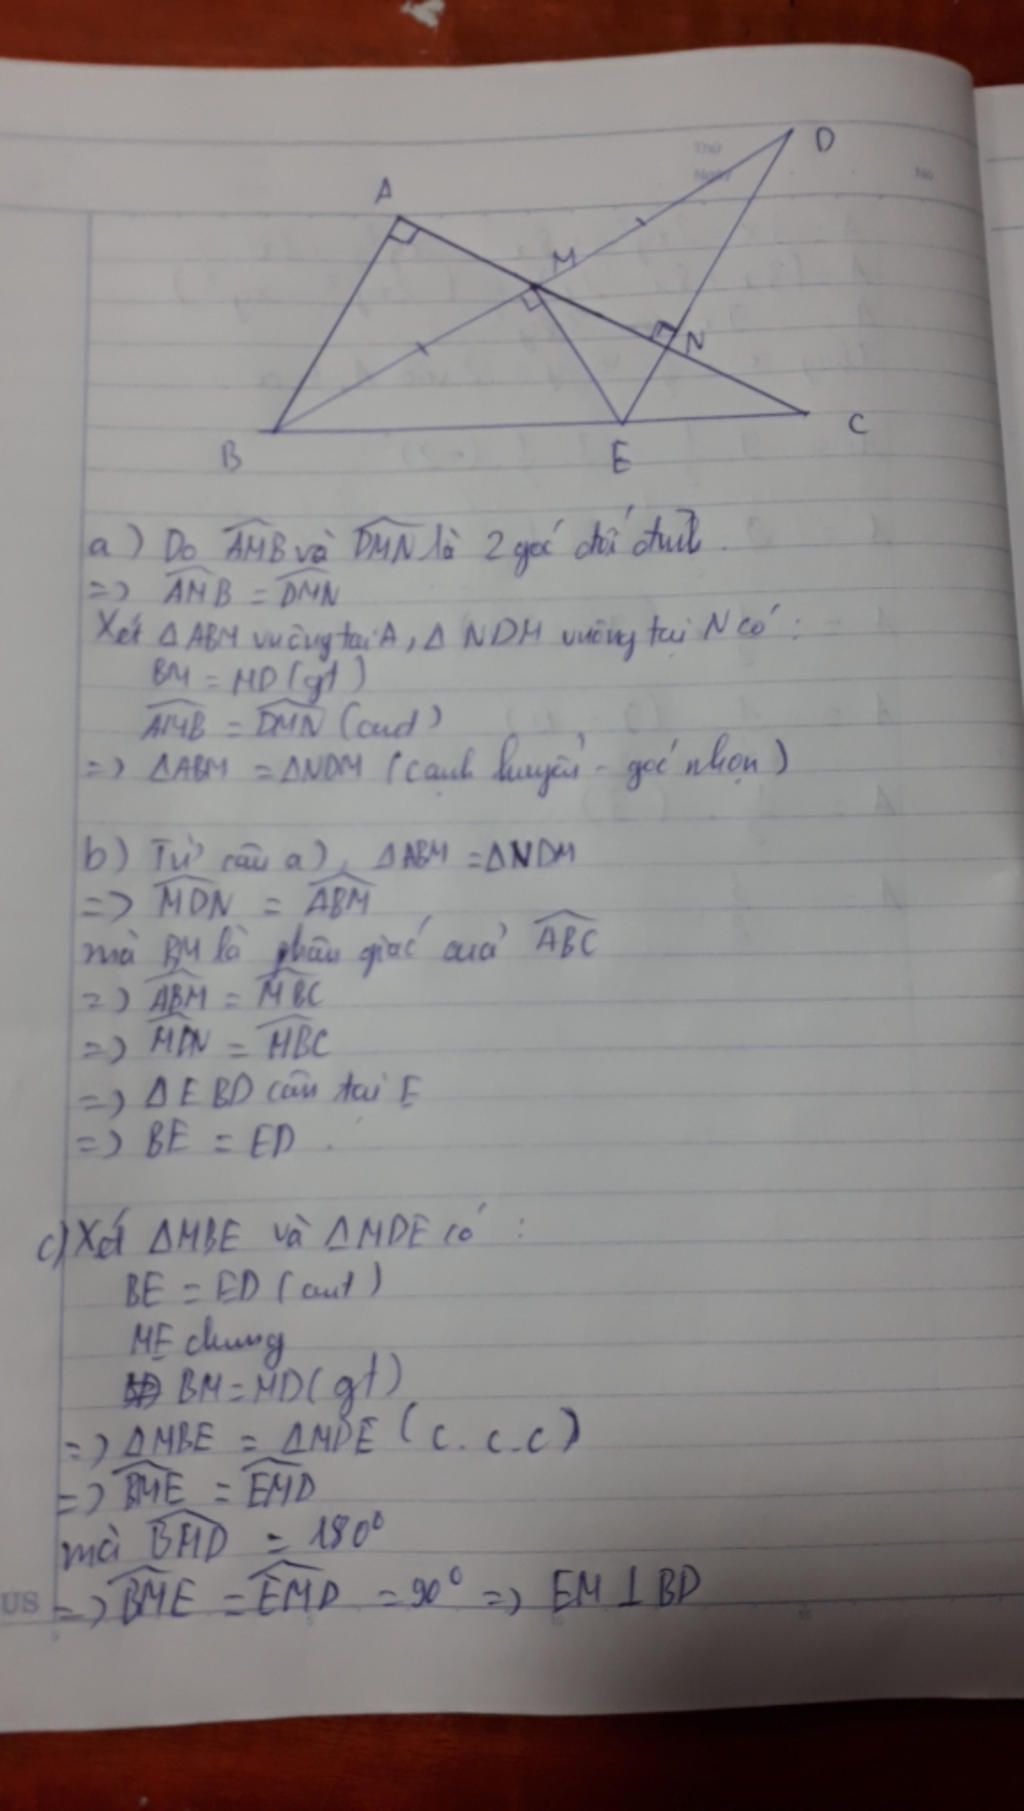 Thứ
D
Ngày
No
A
M
N
C
B
E
a) Do AMB và DMN là 2 góc đối đỉnh.
=> AMB = DMN
Xét ΔABM vuông tại A, Δ NDM vuông tại N có:
BM = MD (gt)
AMB = DMN (cmt)
=> ΔABM = ΔNDM (cạnh huyền - góc nhọn)
b) Từ câu a), ΔABM = ΔNDM
=> MDN = ABM
mà BM là phân giác của ABC
=> ABM = MBC
=> MDN = MBC
=> ΔEBD cân tại E
=> BE = ED.
c) Xét ΔMBE và ΔMDE có:
BE = ED (cmt)
ME chung
BM = MD (gt)
=> ΔMBE = ΔMDE (c.c.c)
=> BME = EMD
mà BMD = 180°
US => BME = EMD = 90° => EM ⊥ BD